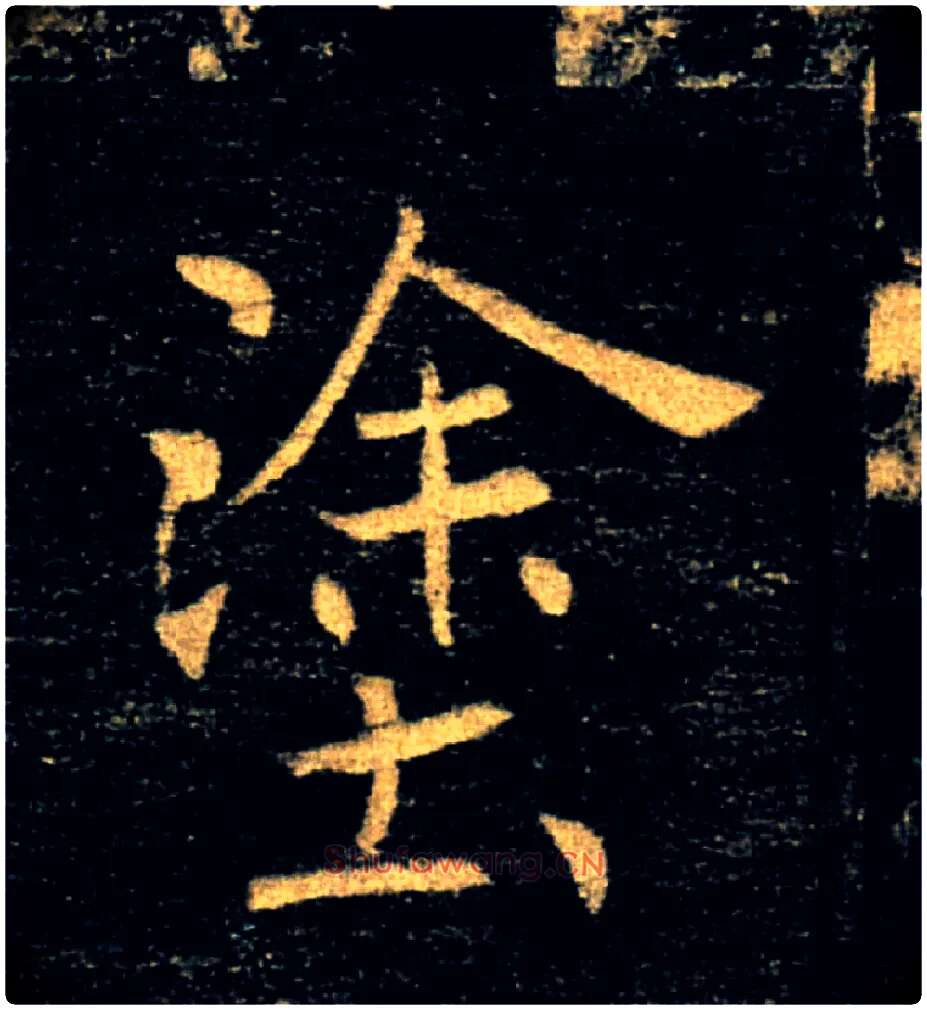 塗
Shufawang.CN